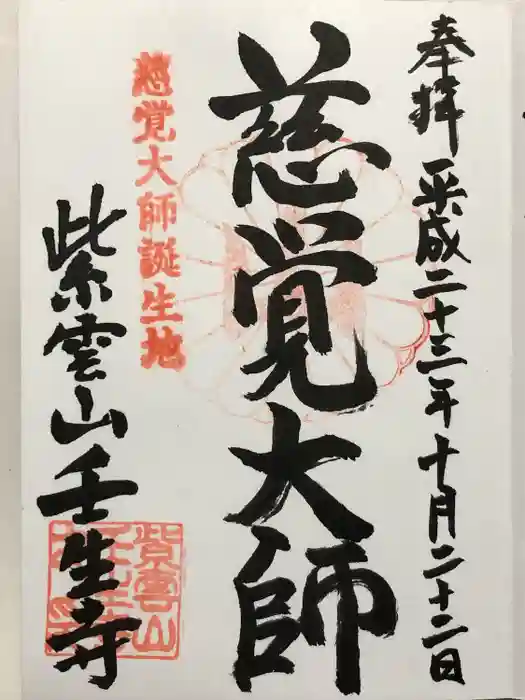 奉拝 平成二十三年十月二十二日
慈覚大師
慈覚大師誕生地
紫雲山壬生寺
紫雲山
壬生寺